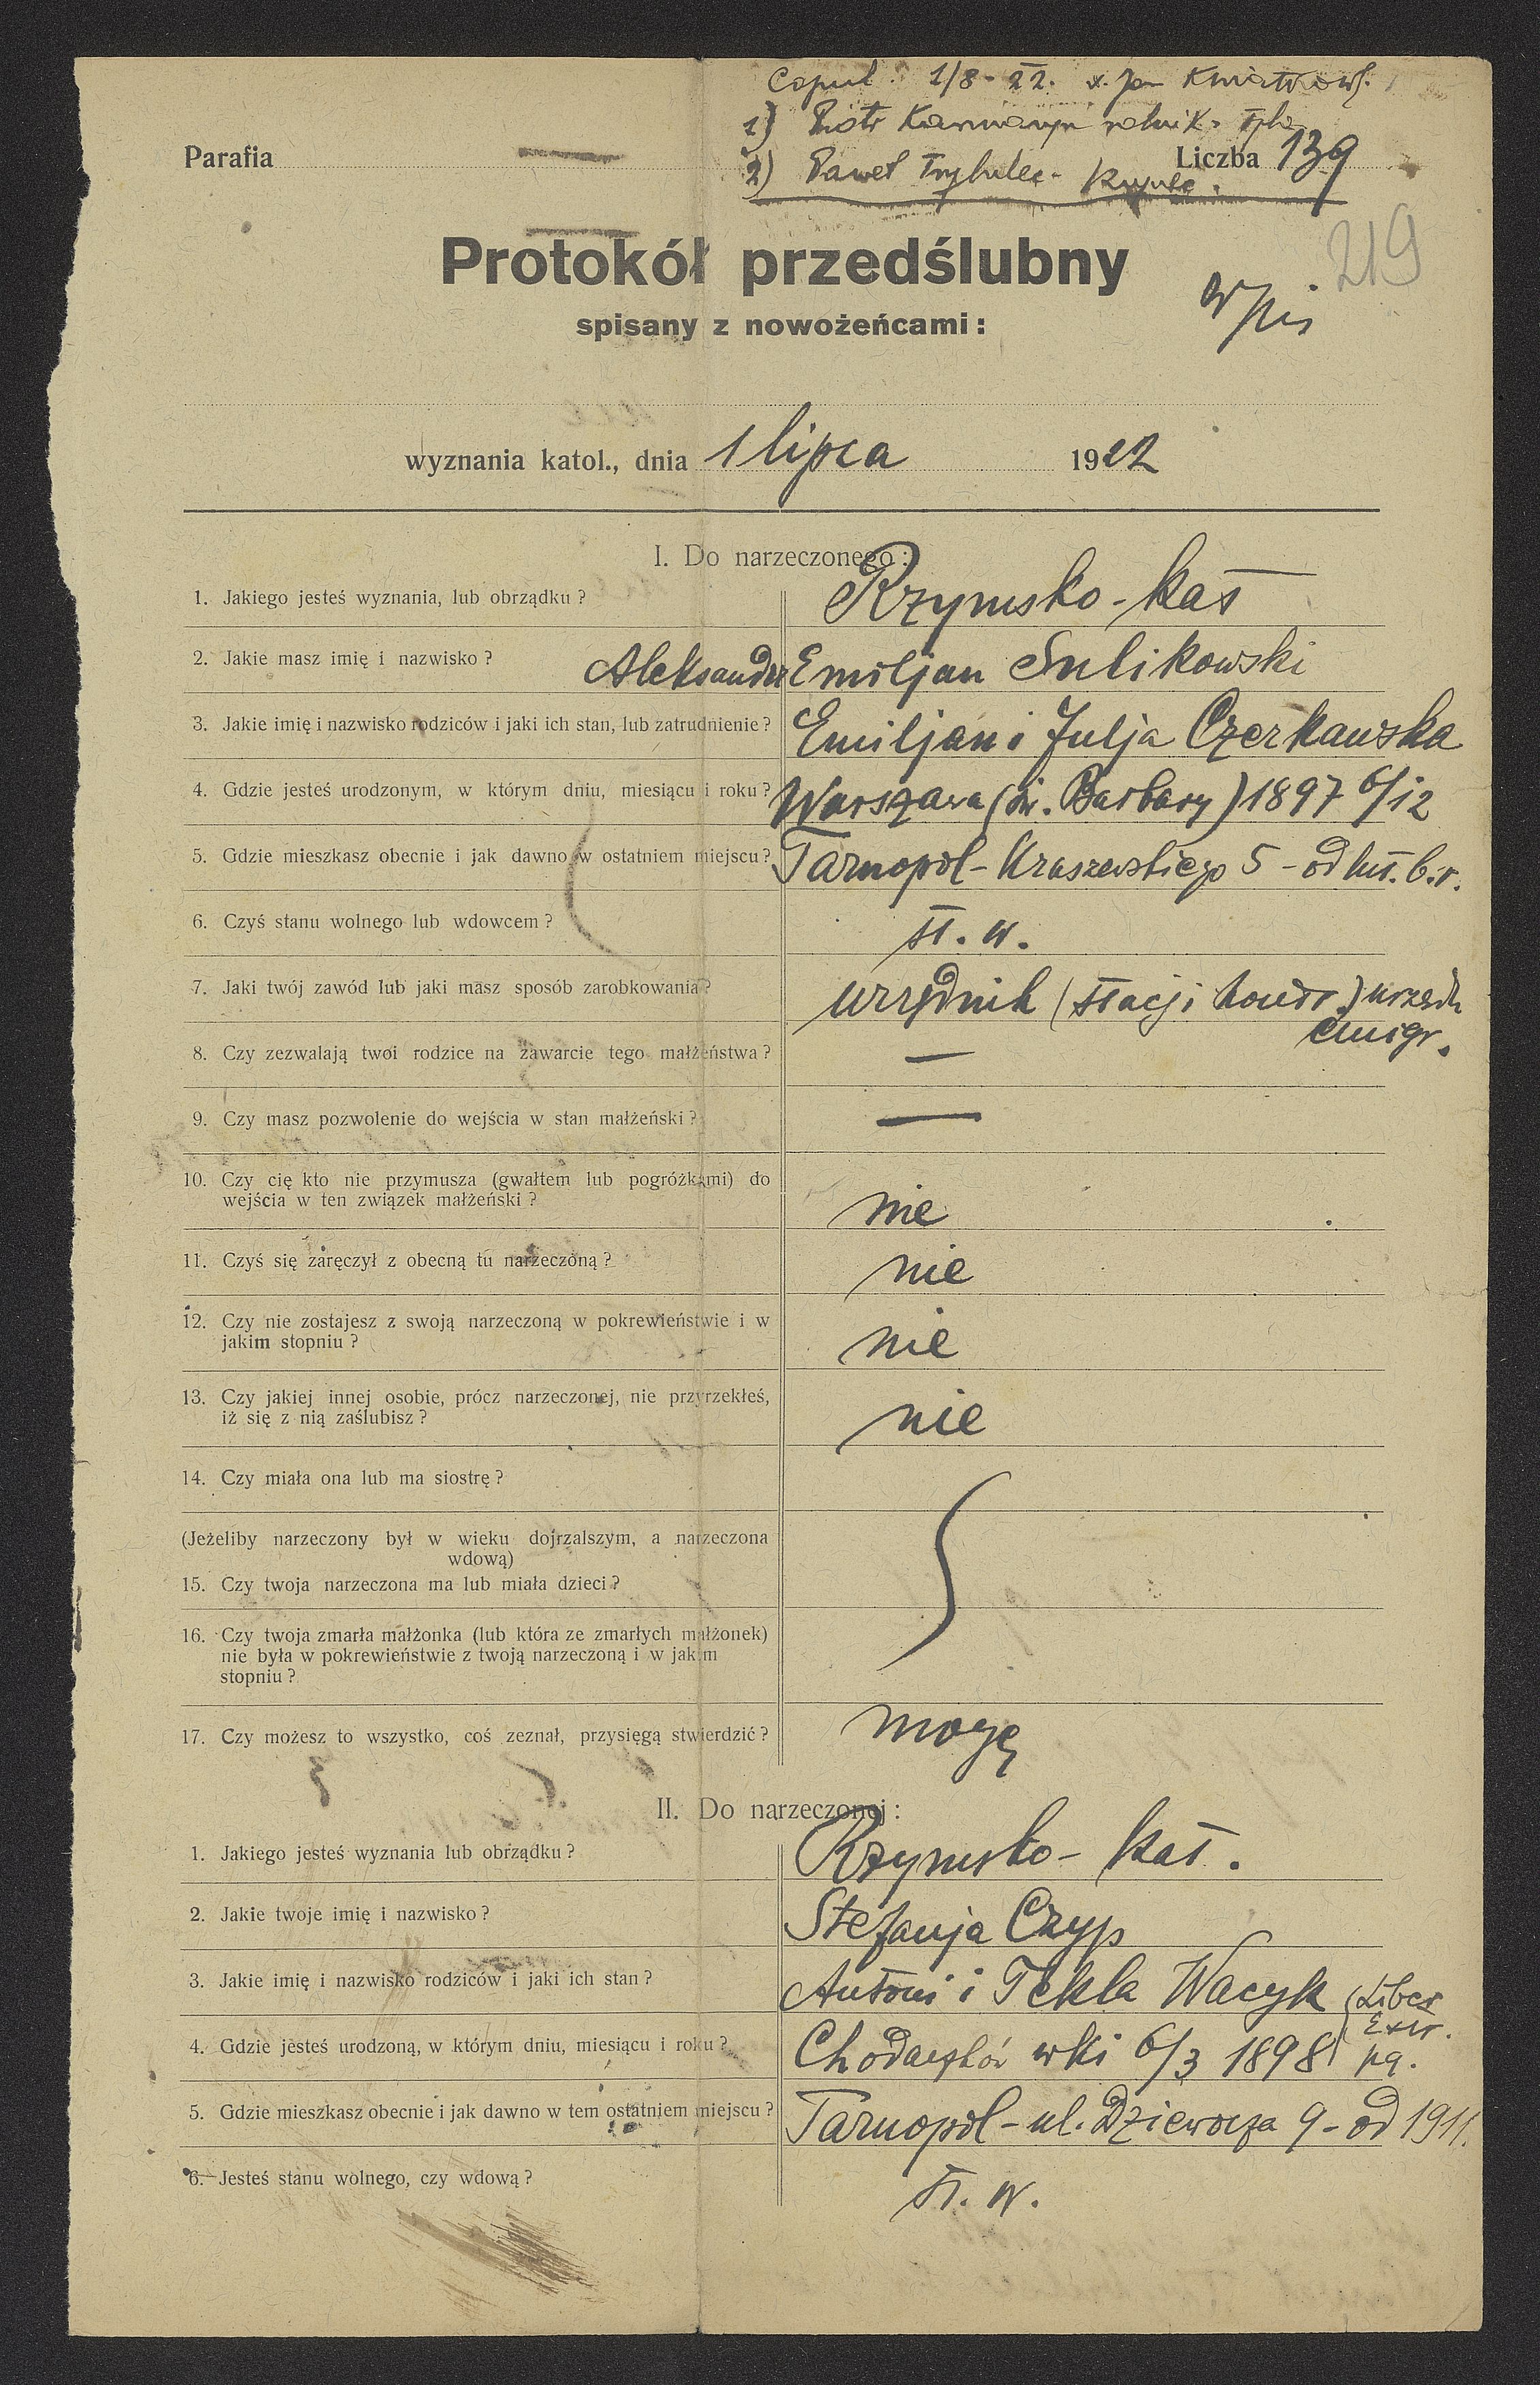 Copul. 1/8 - 22. x. Jan
1) Piotr rolnik
Parafia
2) Paweł Trybulec - Kupiec.
Liczba 139
219
Protokół przedślubny
spisany z nowożeńcami:
wyznania katol., dnia 1 lipca 1922
I. Do narzeczonego:
1. Jakiego jesteś wyznania, lub obrządku? Rzymsko-kat
2. Jakie masz imię i nazwisko? Aleksander Emiljan Sulikowski
3. Jakie imię i nazwisko rodziców i jaki ich stan, lub zatrudnienie? Emiljan i Julja Czerkawska
4. Gdzie jesteś urodzonym, w którym dniu, miesiącu i roku? Warszawa (św. Barbary) 1897 6/12
5. Gdzie mieszkasz obecnie i jak dawno w ostatniem miejscu? Tarnopol - Kraszewskiego 5 - od lut. b.r.
6. Czyś stanu wolnego lub wdowcem? st. w.
7. Jaki twój zawód lub jaki masz sposób zarobkowania? urzędnik (stacji kontr.) urzędu
emigr.
8. Czy zezwalają twoi rodzice na zawarcie tego małżeństwa? —
9. Czy masz pozwolenie do wejścia w stan małżeński? —
10. Czy cię kto nie przymusza (gwałtem lub pogróżkami) do
wejścia w ten związek małżeński? nie
11. Czyś się zaręczył z obecną tu narzeczoną? nie
12. Czy nie zostajesz z swoją narzeczoną w pokrewieństwie i w
jakim stopniu? nie
13. Czy jakiej innej osobie, prócz narzeczonej, nie przyrzekłeś,
iż się z nią zaślubisz? nie
14. Czy miała ona lub ma siostrę?
(Jeżeliby narzeczony był w wieku dojrzalszym, a narzeczona
wdową)
15. Czy twoja narzeczona ma lub miała dzieci?
16. Czy twoja zmarła małżonka (lub która ze zmarłych małżonek)
nie była w pokrewieństwie z twoją narzeczoną i w jakim
stopniu?
17. Czy możesz to wszystko, coś zeznał, przysięgą stwierdzić? mogę
II. Do narzeczonej:
1. Jakiego jesteś wyznania lub obrządku? Rzymsko-kat.
2. Jakie twoje imię i nazwisko? Stefanja Czyp
3. Jakie imię i nazwisko rodziców i jaki ich stan? Antoni i Tekla Wacyk (Liber
Extr.
4. Gdzie jesteś urodzoną, w którym dniu, miesiącu i roku? 6/3 1898 pg.
5. Gdzie mieszkasz obecnie i jak dawno w tem ostatniem miejscu? Tarnopol - ul. 9 - od 1911.
6. Jesteś stanu wolnego, czy wdową? st. w.